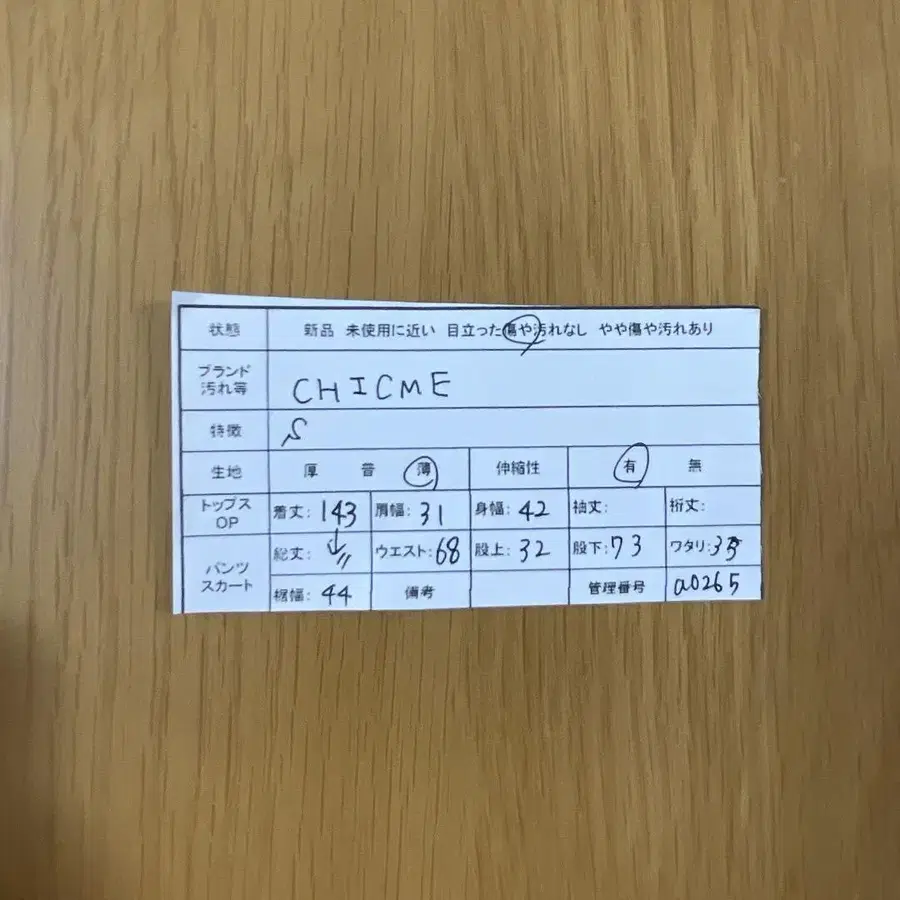 状態 新品 未使用に近い 目立った傷や汚れなし やや傷や汚れあり
ブランド
汚れ等 CHICME
特徴 S
生地 厚 普 薄 伸縮性 有 無
トップス
OP 着丈: 143 肩幅: 31 身幅: 42 袖丈: 裄丈:
パンツ
スカート 総丈: ↓〃 ウエスト: 68 股上: 32 股下: 73 ワタリ: 33
裾幅: 44 備考 管理番号 a0265